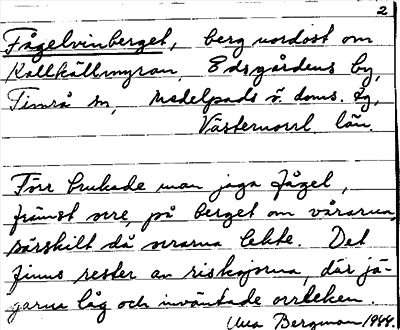 2
Fågelvinberget, berg nordost om
Kallkällmyran, Edsgårdens by,
Timrå sn, Medelpads ö. doms. sg,
Västernorrl. län.
Förr brukade man jaga fågel,
främst orre, på berget om vårarna,
särskilt då orrarna lekte. Det
finns rester av riskojorna, där jä-
garna låg och inväntade orrleken.
Bergman 1944.